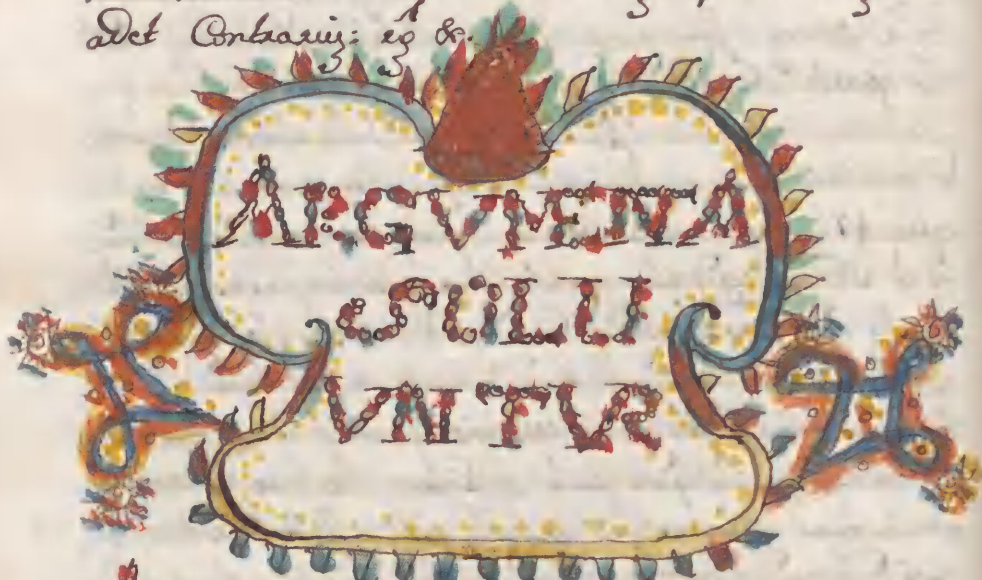 adet Contrariuz: eg &c.
ARGVMENTA
SOLU
VNTVR